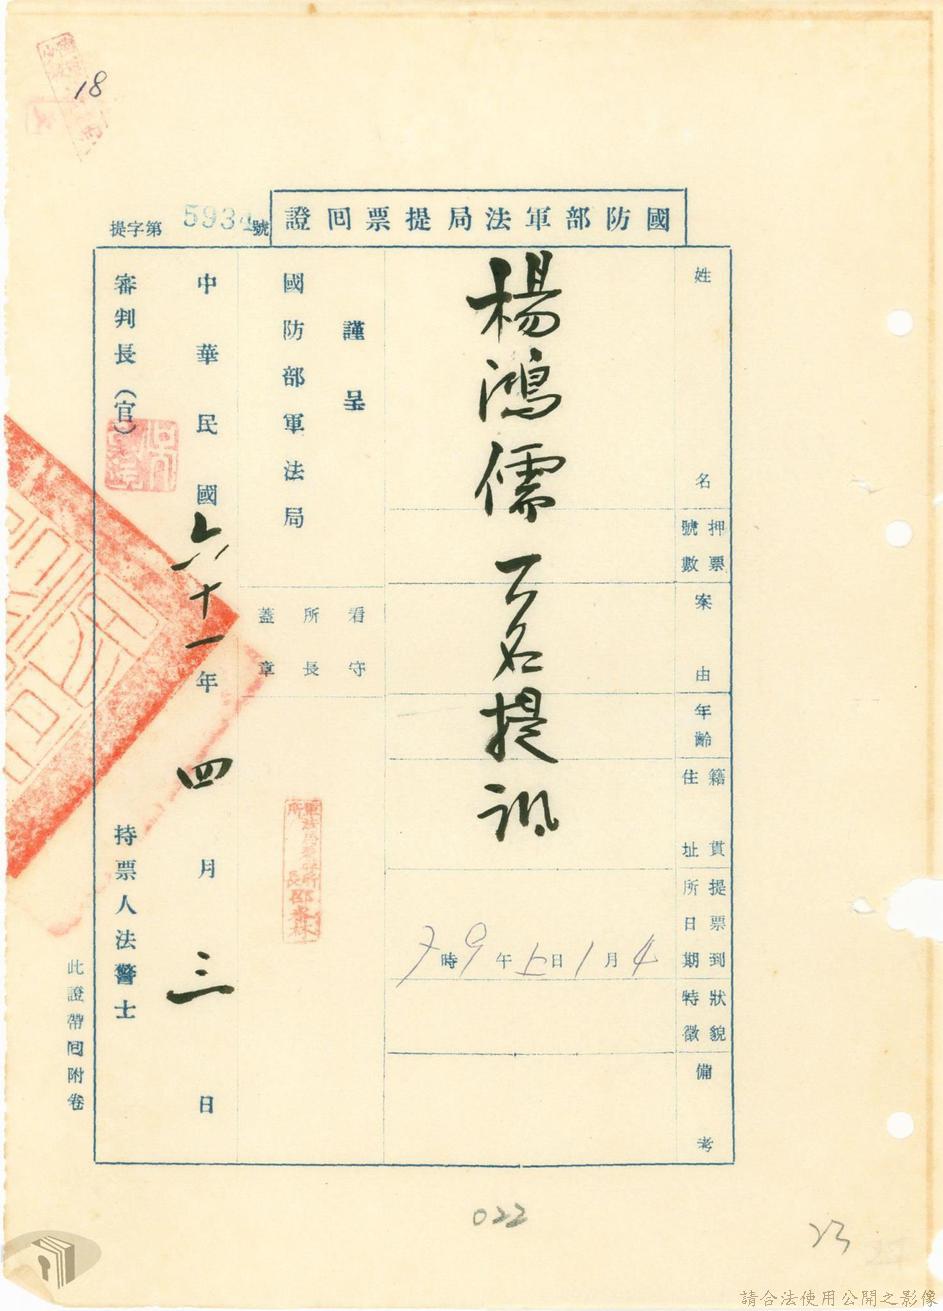 18
國防部軍法局提票回證
提字第5934號
姓名
押票號數
案由
年齡
籍貫住址
提票到所日期
狀貌特徵
備考
楊鴻儒一名提訊
4月1日上午9時
謹呈
國防部軍法局
看守所長蓋章
中華民國六十一年四月三日
審判長(官)
持票人法警士
此證帶回附卷
022
23
請合法使用公開之影像